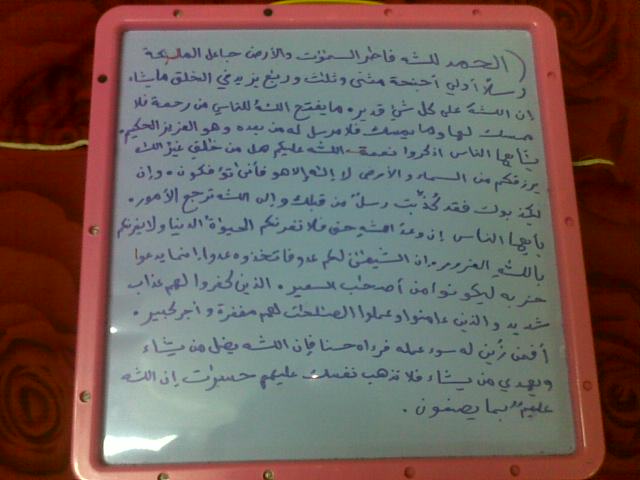 (الحمد لله فاطر السموت والأرض جاعل الملـٰئكة
رسلًا أولي أجنحة مثنى وثلث وربع يزيد في الخلق ما يشاء
إن الله على كل شئ قدير. ما يفتح الله للناس من رحمة فلا
ممسك لها وما يمسك فلا مرسل له من بعده وهو العزيز الحكيم.
يٰأيها الناس اذكروا نعمت الله عليكم هل من خٰلق غير الله
يرزقكم من السماء والأرض لا إله إلا هو فأنى تؤفكون. وإن
يكذبوك فقد كُذِّبت رسلٌ من قبلك وإلى الله ترجع الأمور.
يأيها الناس إن وعد الله حق فلا تغرنكم الحيوٰة الدنيا ولا يغرنكم
بالله الغرور. إن الشيطٰن لكم عدو فاتخذوه عدوا إنما يدعوا
حزبه ليكونوا من أصحٰب السعير. الذين كفروا لهم عذاب
شديد والذين ءامنوا وعملوا الصٰلحٰت لهم مغفرة وأجر كبير.
أفمن زُين له سوء عمله فرءاه حسنا فإن الله يضل من يشاء
ويهدي من يشاء فلا تذهب نفسك عليهم حسرٰت إن الله
عليم بما يصنعون.